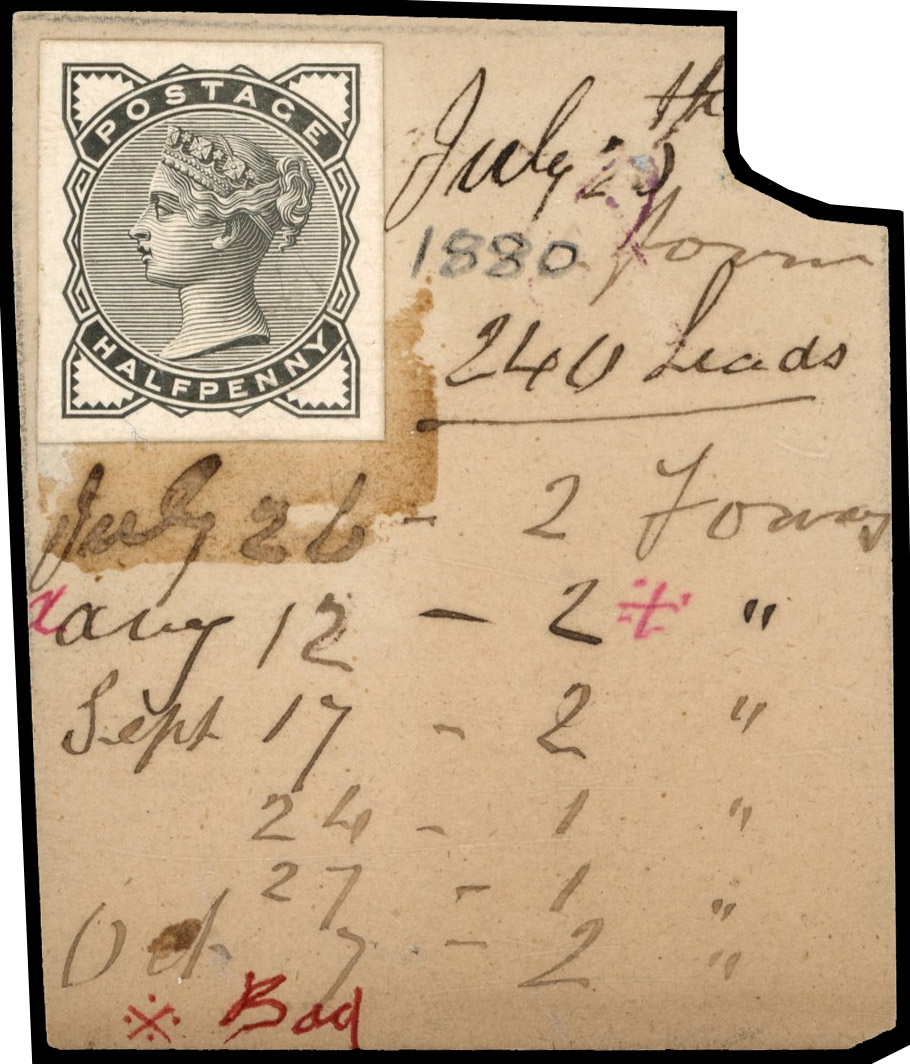 POSTAGE
HALFPENNY
July 23th
1880 form
240 Leads
July 26 - 2 Forms
x aug 12 - 2 ※ "
Sept 17 - 2 "
24 - 1 "
27 - 1 "
Oct 7 - 2 "
※ Bad